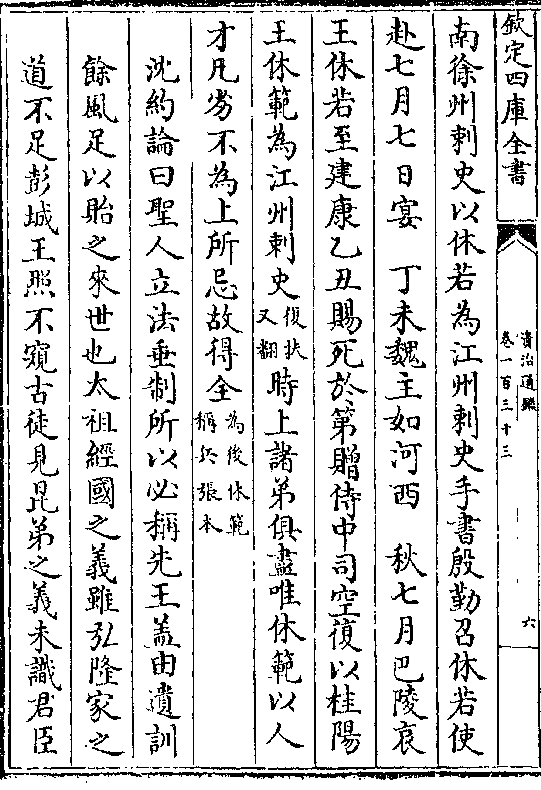 欽定四庫全書
資治通鑑
卷一百三十三
六
南徐州刺史以休若為江州刺史手書殷勤召休若使
赴七月七日宴　丁未魏主如河西　秋七月巴陵哀
王休若至建康乙丑賜死於第贈侍中司空復以桂陽
王休範為江州刺史復扶又翻時上諸弟俱盡唯休範以人
才凡劣不為上所忌故得全為後休範稱兵張本
沈約論曰聖人立法垂制所以必稱先王蓋由遺訓
餘風足以貽之來世也太祖經國之義雖弘隆家之
道不足彭城王照不窺古徒見昆弟之義未識君臣